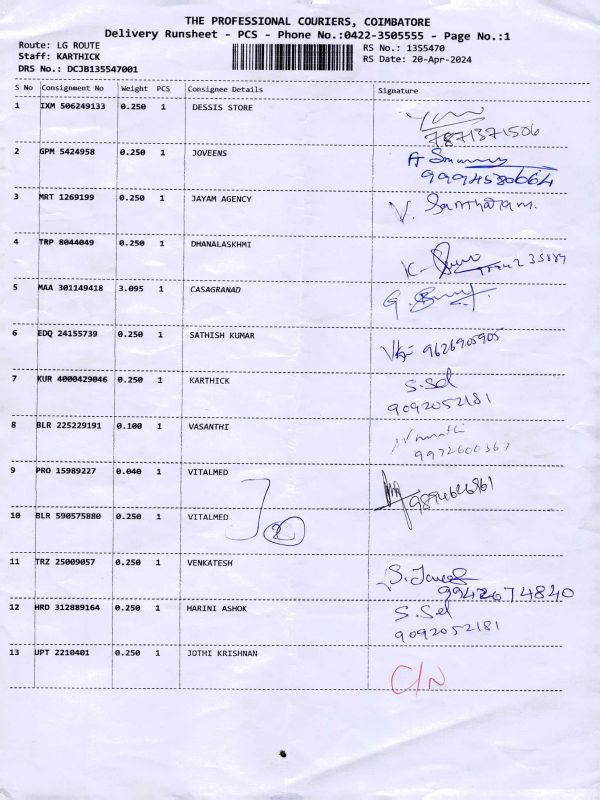 THE PROFESSIONAL COURIERS, COIMBATORE
Delivery Runsheet - PCS - Phone No.:0422-3505555 - Page No.:1
Route: LG ROUTE RS No.: 1355470
Staff: KARTHICK RS Date: 20-Apr-2024
DRS No.: DCJB135547001
S No Consignment No Weight PCS Consignee Details Signature
1 IXM 506249133 0.250 1 DESSIS STORE
7871371506
2 GPM 5424958 0.250 1 JOVEENS
9994580664
3 MRT 1269199 0.250 1 JAYAM AGENCY V.
4 TRP 8044049 0.250 1 DHANALASKHMI
K.
5 MAA 301149418 3.095 1 CASAGRANAD G.
6 EDQ 24155739 0.250 1 SATHISH KUMAR 9626905905
7 KUR 4000429046 0.250 1 KARTHICK S.Sel
9092052181
8 BLR 225229191 0.100 1 VASANTHI
9972600367
9 PRO 15989227 0.040 1 VITALMED 9894626861
10 BLR 590575880 0.250 1 VITALMED 2
11 TRZ 25009057 0.250 1 VENKATESH S.
9942674840
12 HRD 312889164 0.250 1 HARINI ASHOK S.Sel
9092052181
13 UPT 2210401 0.250 1 JOTHI KRISHNAN C/N